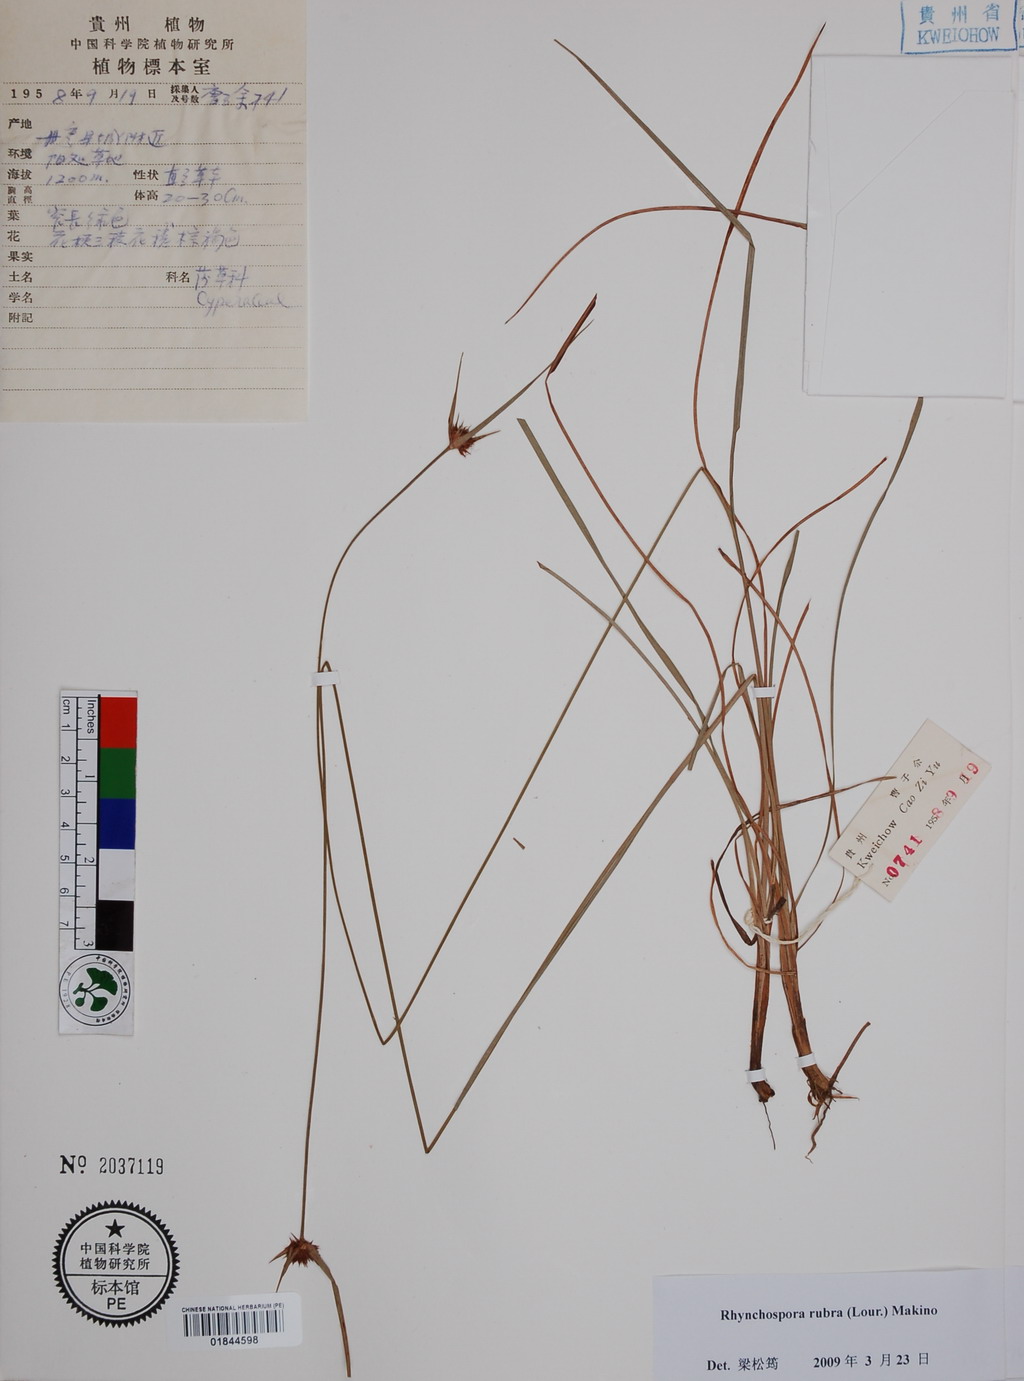 貴州 植物
中国科学院植物研究所
植物標本室
1958年9月19日 採集人及号数 曹子余741
产地 丹寨县城附近
环境 阳处草地
海拔 1200m. 性状 直立草本
胸高直徑 体高 20-30Cm.
葉 绿色
花 花梗三棱花 棕褐色
果实
土名 科名 莎草科
学名 Cyperaceae
附記
貴州省
KWEICHOW
貴州 曹子余
Kweichow Cao Zi Yu
No 0741 1958年9月19
cm 1 2 3 4 5 6 7
Inches 1 2 3
No 2037119
中国科学院
植物研究所
标本馆
PE
CHINESE NATIONAL HERBARIUM (PE)
01844598
Rhynchospora rubra (Lour.) Makino
Det. 梁松筠 2009 年 3 月 23 日